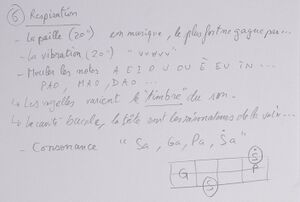 ⑥ Respiration
- La paille (20") en musique, le plus fort ne gagne pas...
- La vibration (20") "vvvvv"
- Moduler les notes A E I O U OU È EU IN...
PAO, MAO, DAO...
↳ Les voyelles varient le "timbre" du son.
↳ La cavité buccale, la tête sont les résonnateurs de la voix...
- Consonance " Sa, Ga, Pa, Ṡa "
G S P Ṡ